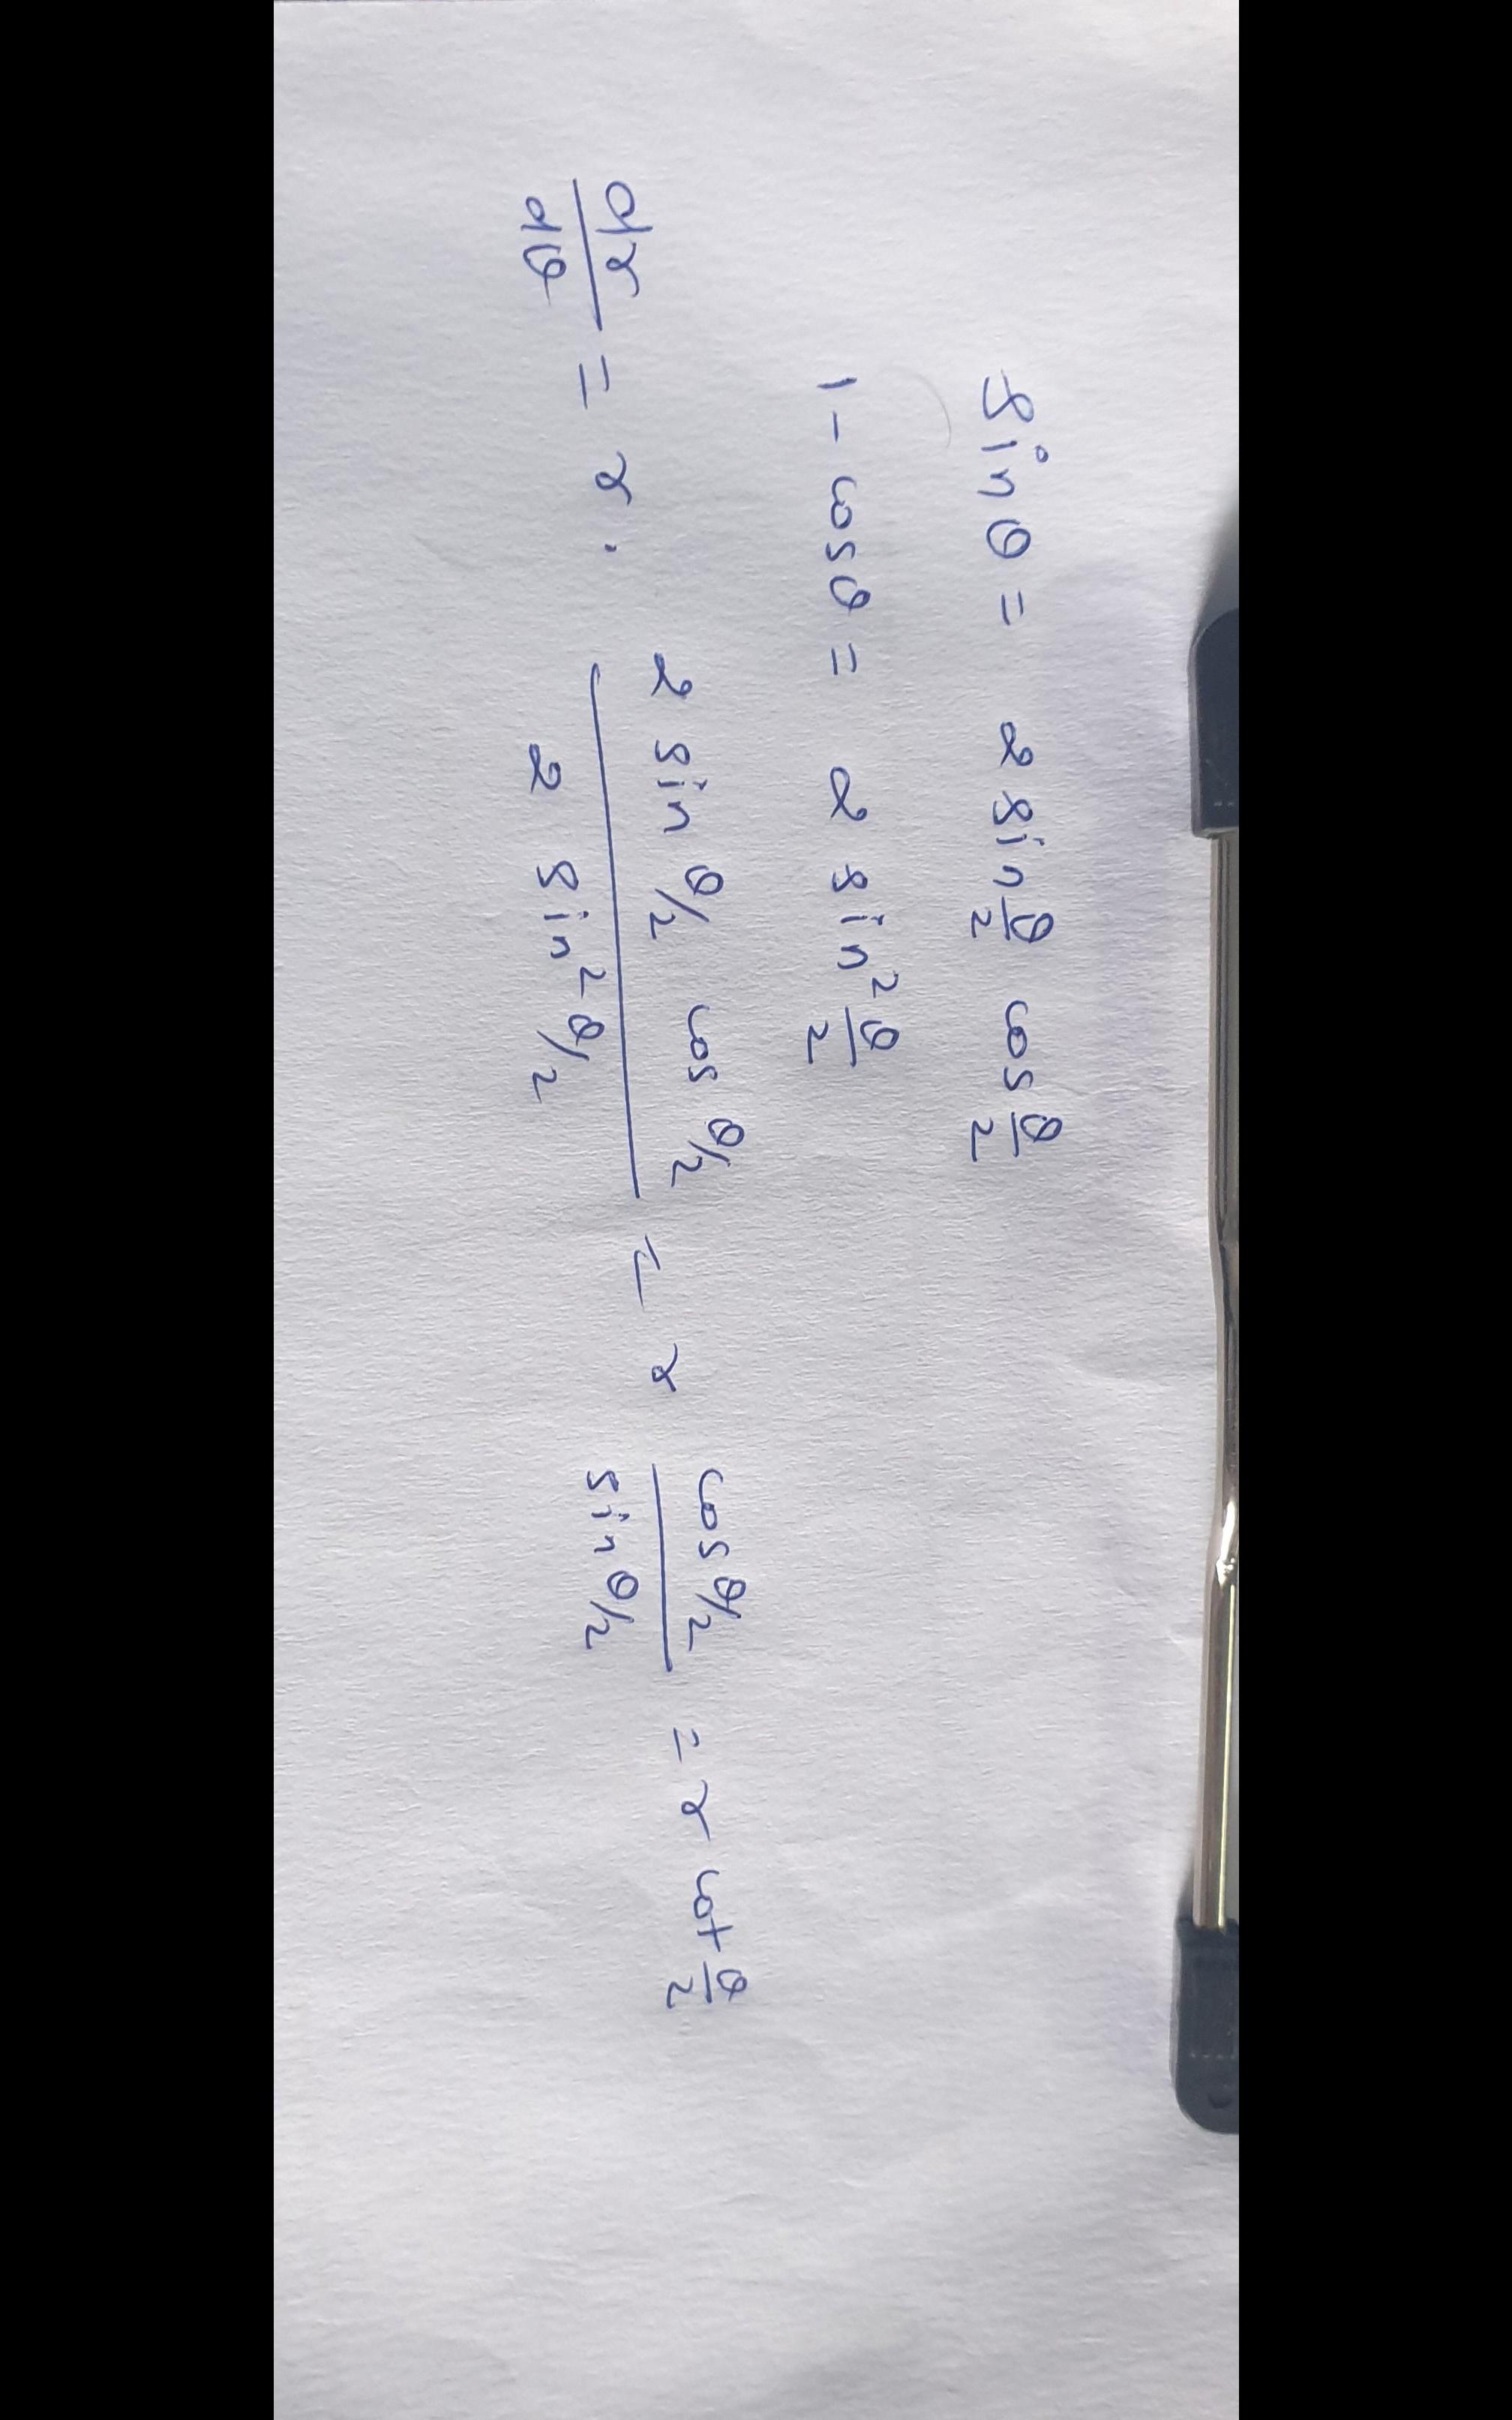 sin θ = 2 sin θ/2 cos θ/2
1 - cos θ = 2 sin² θ/2
dr/dθ = r . 2 sin θ/2 cos θ/2 / 2 sin² θ/2 = r cos θ/2 / sin θ/2 = r cot θ/2